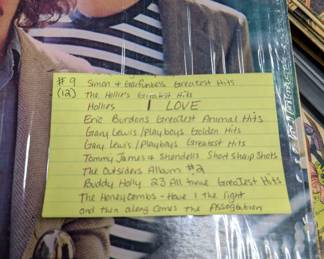 #9 Simon & Garfunkels Greatest Hits
(12) The Hollies Greatest Hits
Hollies I LOVE
Eric Burdons Greatest Animal Hits
Gary Lewis/Playboys Golden Hits
Gary Lewis/Playboys Greatest Hits
Tommy James & Shondells Short Sharp Shots
The Outsiders Album #2
Buddy Holly 23 All time Greatest Hits
The Honeycombs - Have I the right
and then along comes the Association